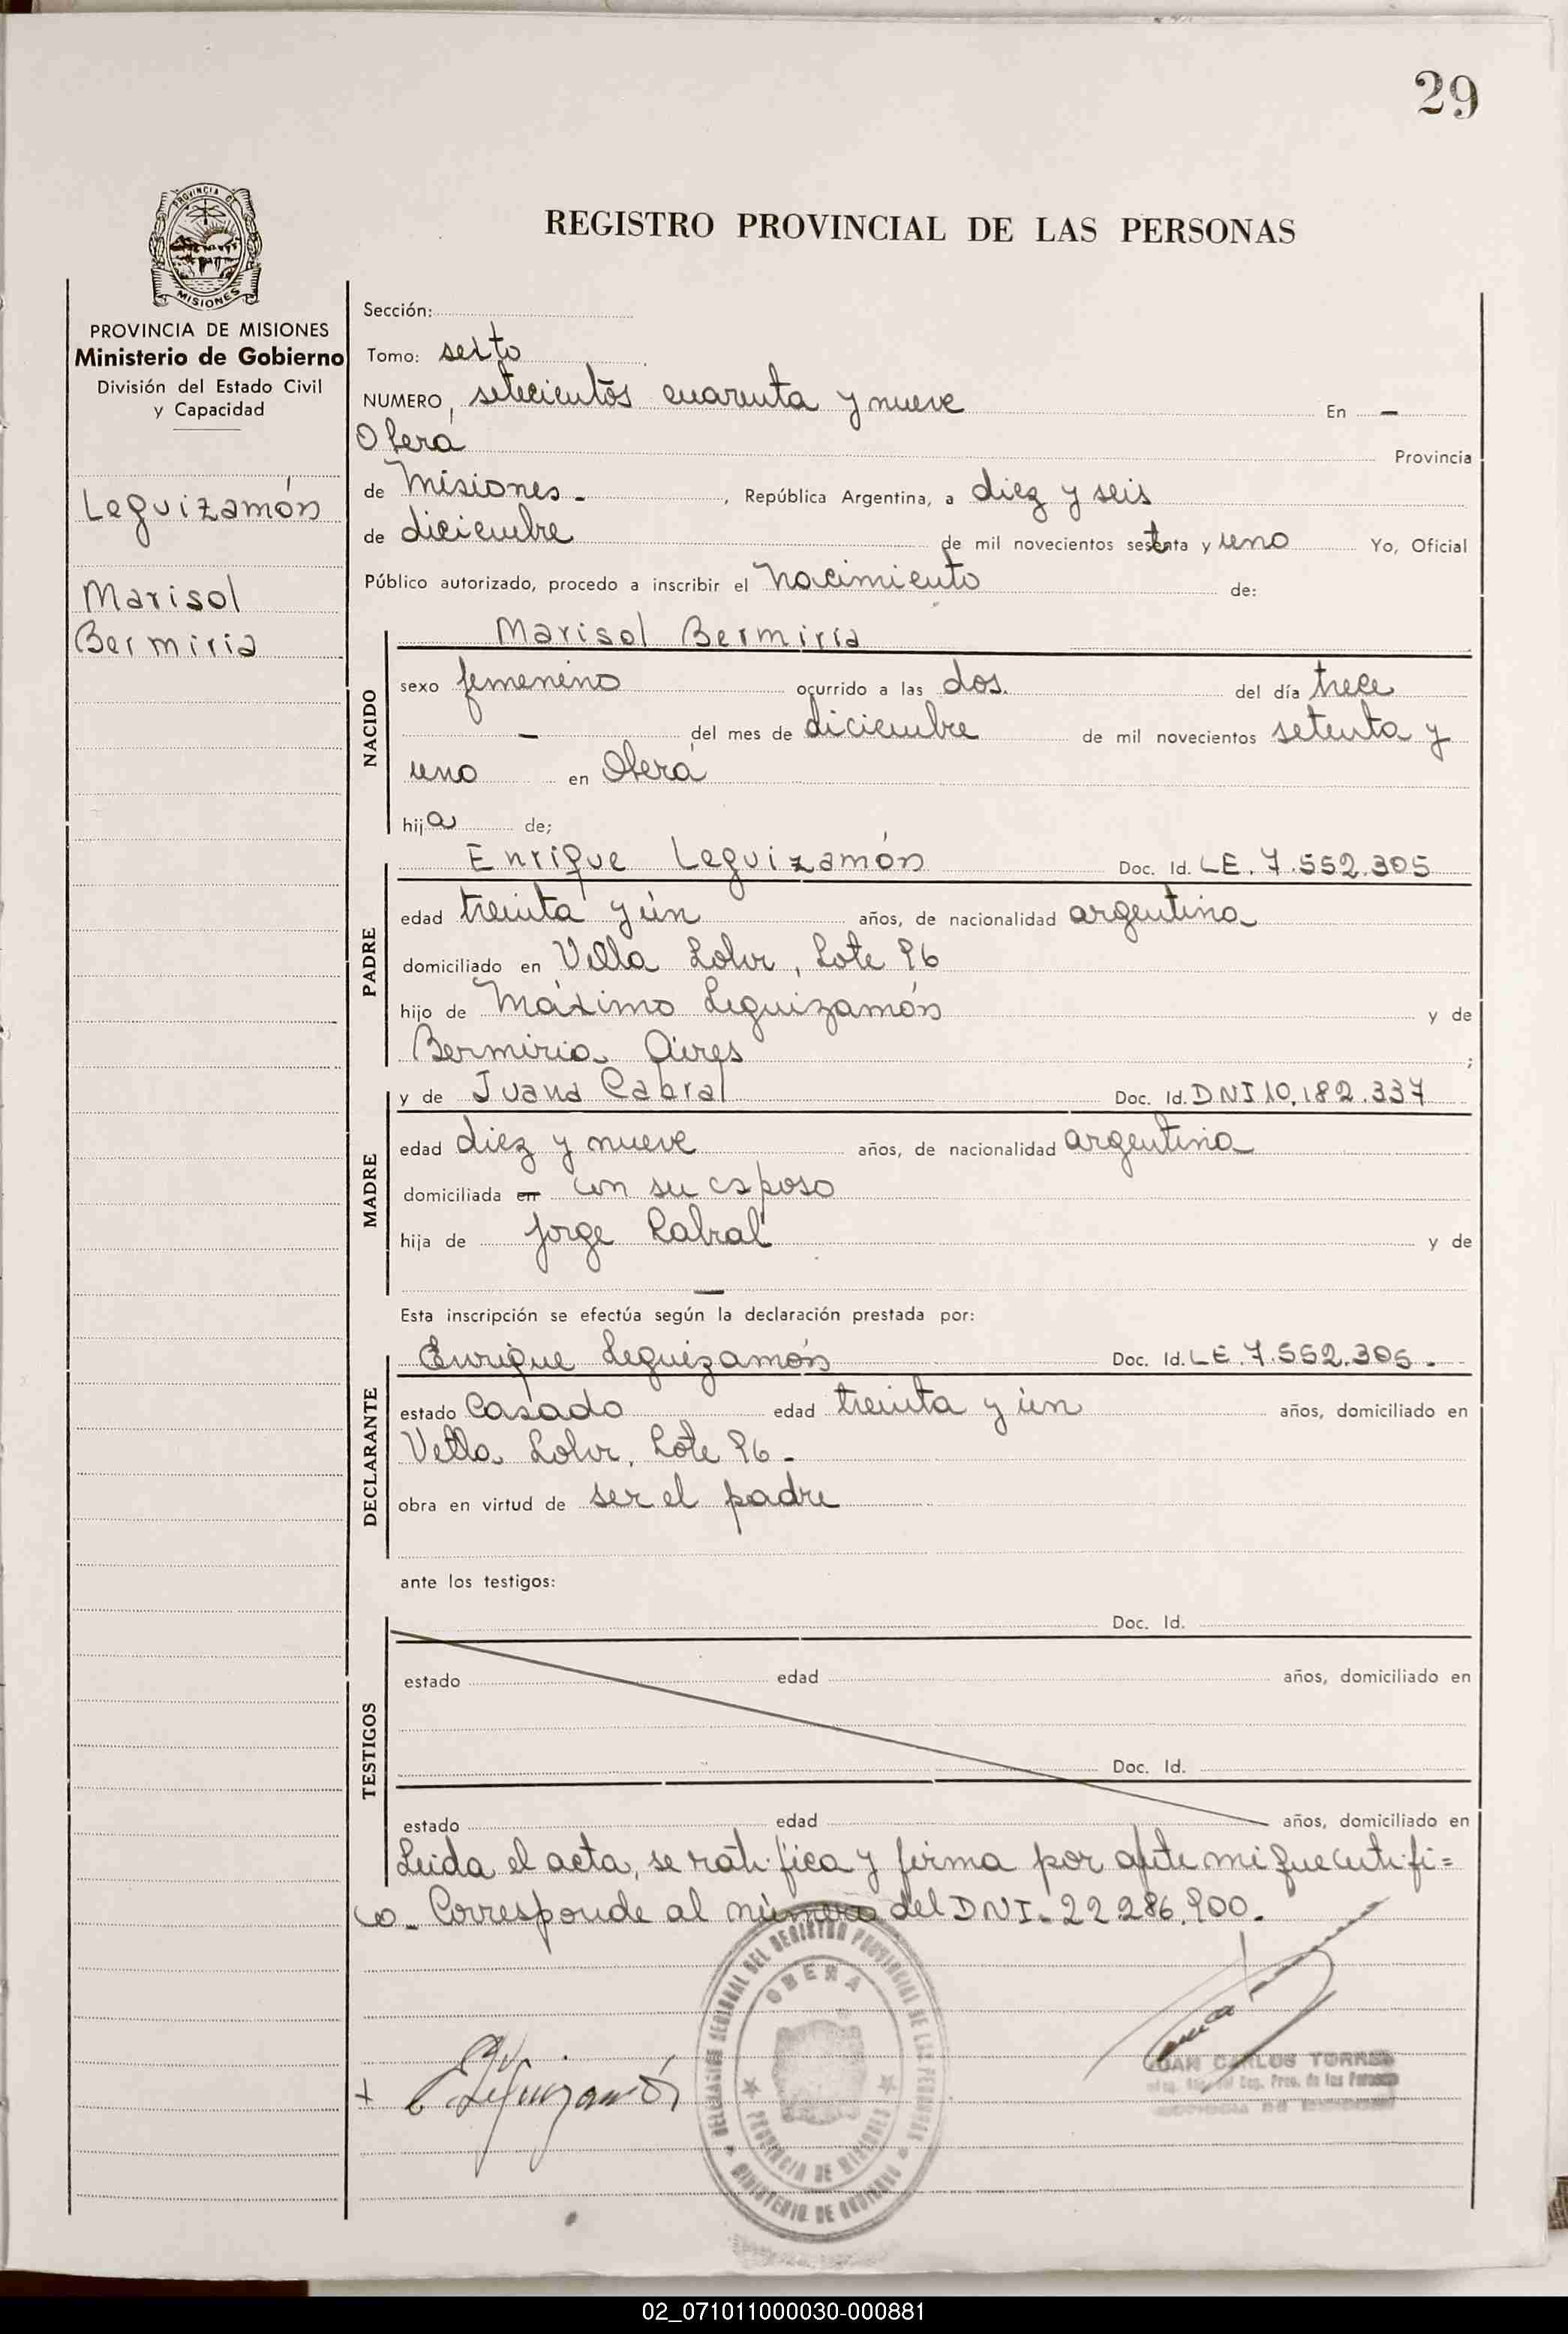 29
PROVINCIA DE
MISIONES
REGISTRO PROVINCIAL DE LAS PERSONAS
PROVINCIA DE MISIONES
Ministerio de Gobierno
División del Estado Civil
y Capacidad
Leguizamón
Marisol
Bermiria
Sección:
Tomo: sexto
NUMERO, setecientos cuarenta y nueve En –
Oberá Provincia
de Misiones - , República Argentina, a diez y seis
de diciembre de mil novecientos setenta y uno Yo, Oficial
Público autorizado, procedo a inscribir el nacimiento de:
NACIDO
Marisol Bermiria
sexo femenino ocurrido a las dos. del día trece
– del mes de diciembre de mil novecientos setenta y
uno en Oberá
hija de;
PADRE
Enrique Leguizamón Doc. Id. LE. 7.552.305
edad treinta y ún años, de nacionalidad argentina
domiciliado en Villa Lohr, Lote 96
hijo de Máximo Leguizamón y de
Bermiria Aires ;
MADRE
y de Juana Cabral Doc. Id. DNI 10.182.337
edad diez y nueve años, de nacionalidad argentina
domiciliada en con su esposo
hija de Jorge Cabral y de
—
Esta inscripción se efectúa según la declaración prestada por:
DECLARANTE
Enrique Leguizamón Doc. Id. LE. 7.552.305.-
estado Casado edad treinta y ún años, domiciliado en
Villa Lohr, Lote 96.-
obra en virtud de ser el padre
ante los testigos:
TESTIGOS
Doc. Id.
estado edad años, domiciliado en
Doc. Id.
estado edad años, domiciliado en
Leida el acta, se ratifica y firma por ante mi que certifi=
co.- Corresponde al número del DNI.- 22.286.900.-
DELEGACION SECCIONAL DEL REGISTRO PROVINCIAL DE LAS PERSONAS
OBERA
PROVINCIA DE MISIONES
MINISTERIO DE GOBIERNO
E Leguizamón
JUAN CARLOS TORRES
Reg. Prov. de las Personas
02_071011000030-000881